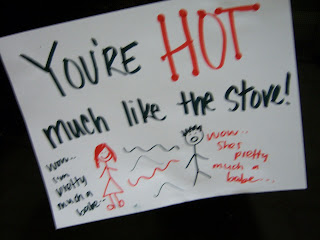 YOU'RE HOT
much like the stove!
wow..
i'm
pretty
much a
babe..
wow..
She's
pretty
much a
babe...